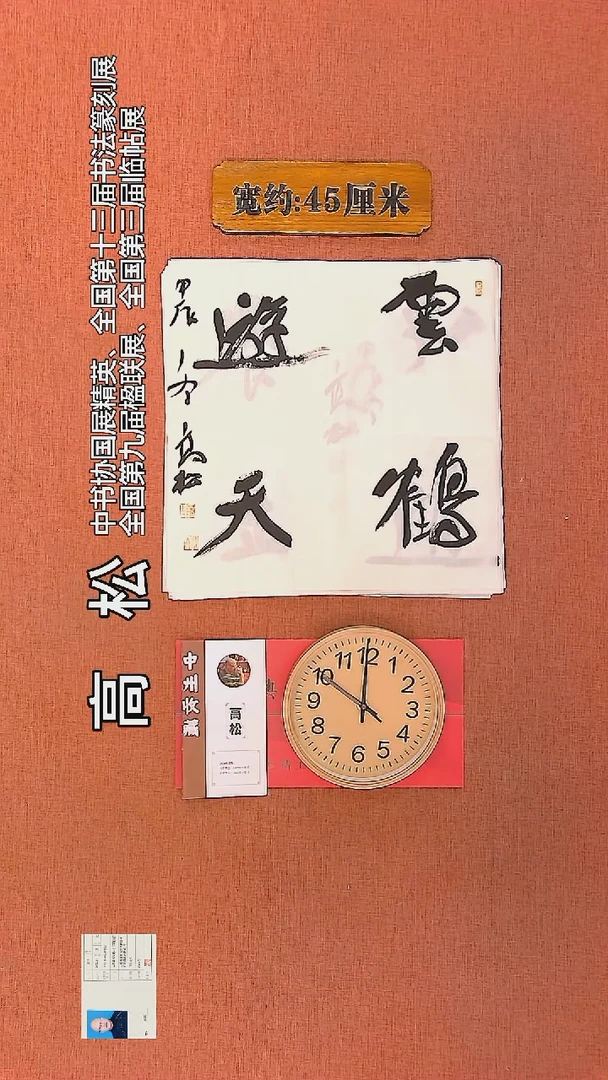 高 松
中书协国展精英、全国第十三届书法篆刻展
全国第九届楹联展、全国第三届临帖展
宽约:45厘米
雲鶴
遊天
甲辰
高松
高松
12
1
2
3
4
5
6
7
8
9
10
11